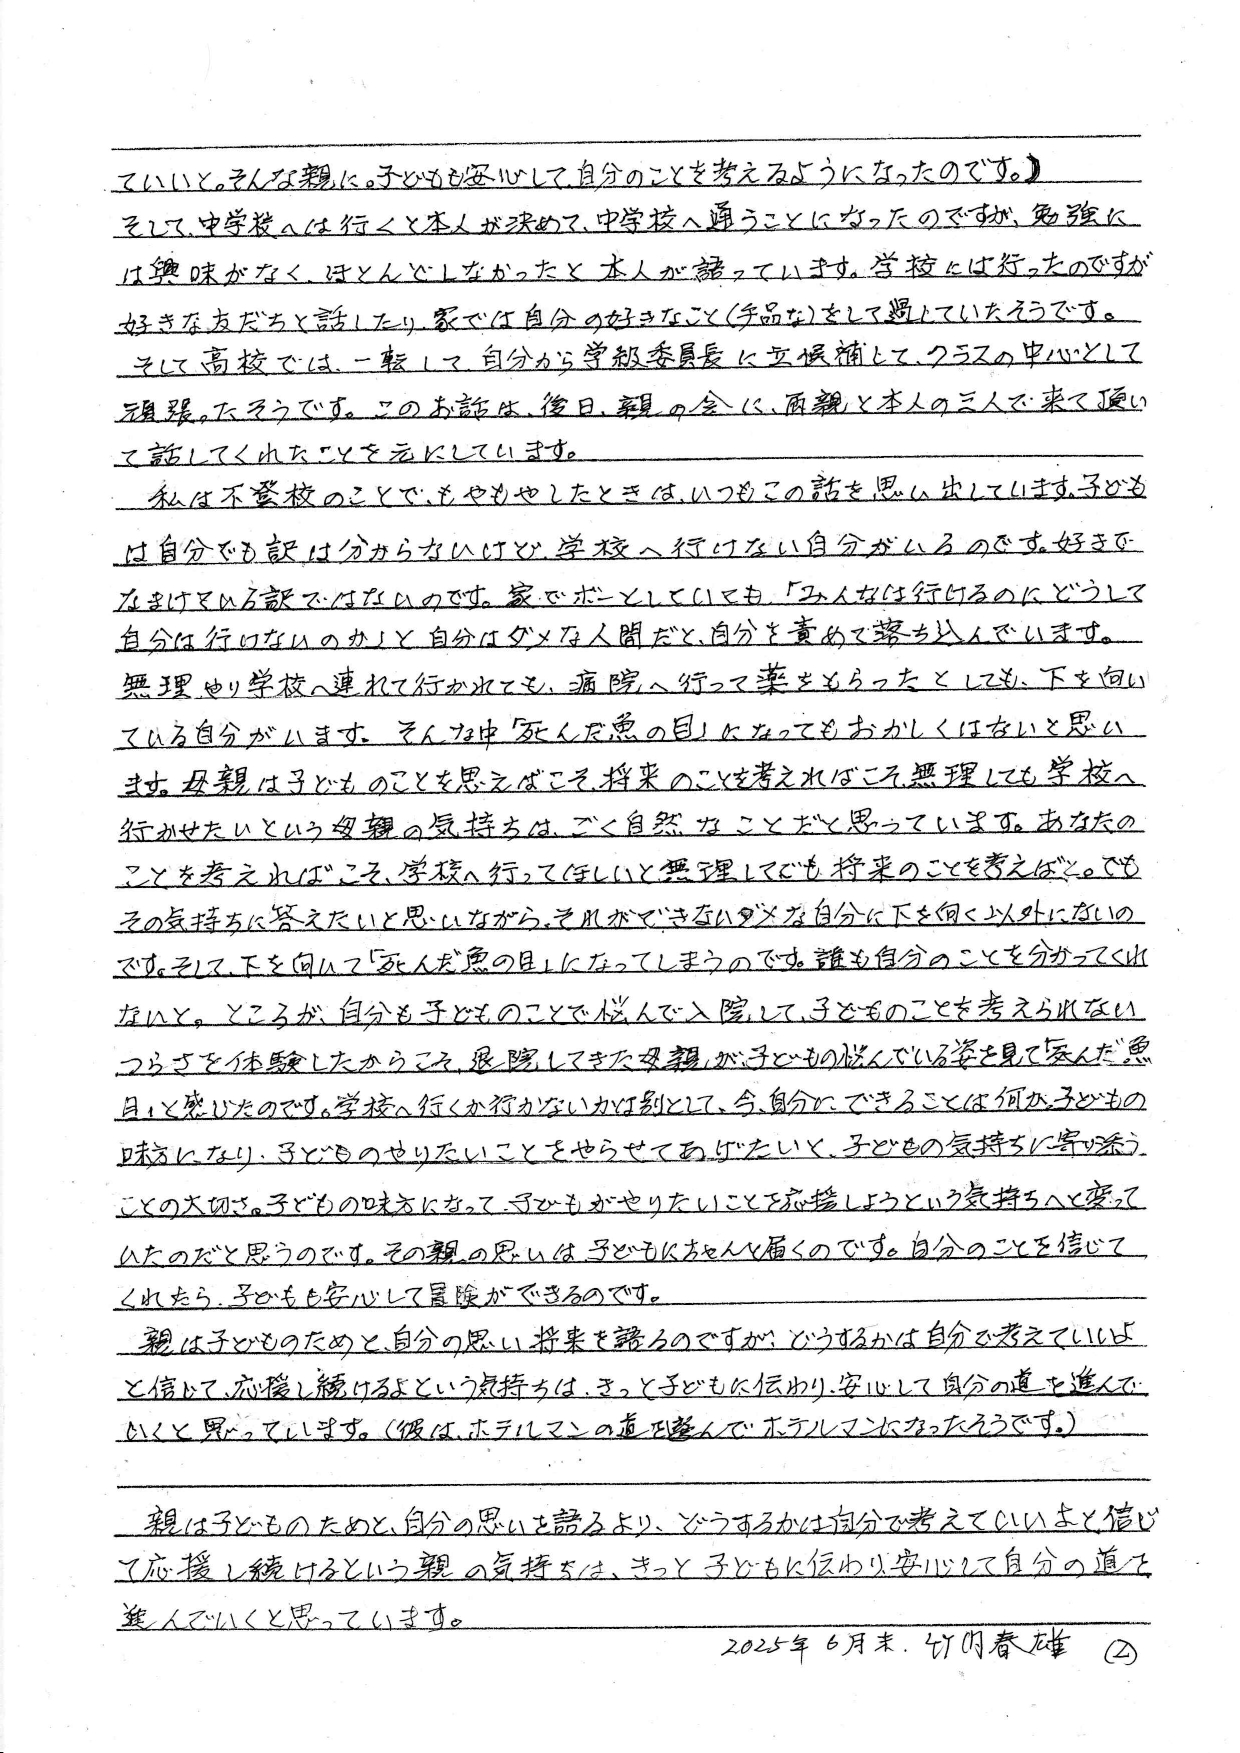 ていいと。そんな親に。子どもも安心して、自分のことを考えるようになったのです。）
そして、中学校へは行くと本人が決めて、中学校へ通うことになったのですが、勉強に
は興味がなく、ほとんどしなかったと本人が語っています。学校には行ったのですが
好きな友だちと話したり、家では自分の好きなこと（手品な）をして過していたそうです。
そして高校では、一転して、自分から学級委員長に立候補して、クラスの中心として
頑張ったそうです。このお話は、後日、親の会に、両親と本人の三人で来て頂い
て話してくれたことを元にしています。
私は不登校のことで、もやもやしたときは、いつもこの話を思い出しています。子ども
は自分でも訳は分からないけど、学校へ行けない自分がいるのです。好きで
なまけている訳ではないのです。家でボーとしていても、「みんなは行けるのにどうして
自分は行けないのか」と自分はダメな人間だと、自分を責めて落ち込んでいます。
無理やり学校へ連れて行かれても、病院へ行って薬をもらったとしても、下を向い
ている自分がいます。そんな中「死んだ魚の目」になってもおかしくはないと思い
ます。母親は子どものことを思えばこそ、将来のことを考えればこそ、無理しても学校へ
行かせたいという母親の気持ちは、ごく自然なことだと思っています。あなたの
ことを考えればこそ、学校へ行ってほしいと無理してでも将来のことを考えばと。でも
その気持ちに答えたいと思いながら、それができないダメな自分に下を向く以外にないの
です。そして、下を向いて「死んだ魚の目」になってしまうのです。誰も自分のことを分かってくれ
ないと。ところが、自分も子どものことで悩んで入院して、子どものことを考えられない
つらさを体験したからこそ、退院してきた母親が、子どもの悩んでいる姿を見て「死んだ魚
目」と感じたのです。学校へ行くか行かないかは別として、今、自分に、できることは何か、子どもの
味方になり、子どものやりたいことをやらせてあげたいと、子どもの気持ちに寄り添う
ことの大切さ。子どもの味方になって、子どもがやりたいことを応援しようという気持ちへと変って
いたのだと思うのです。その親の思いは子どもにちゃんと届くのです。自分のことを信じて
くれたら、子どもも安心して冒険ができるのです。
親は子どものためと、自分の思い将来を語るのですが、どうするかは自分で考えていいよ
と信じて、応援し続けるよという気持ちは、きっと子どもに伝わり、安心して自分の道を進んで
いくと思っています。（彼は、ホテルマンの道を選んでホテルマンになったそうです。）
親は子どものためと、自分の思いを語るより、どうするかは自分で考えていいよと、信じ
て応援し続けるという親の気持ちは、きっと子どもに伝わり、安心して自分の道を
進んでいくと思っています。
2025年6月末. 竹内春雄 ②